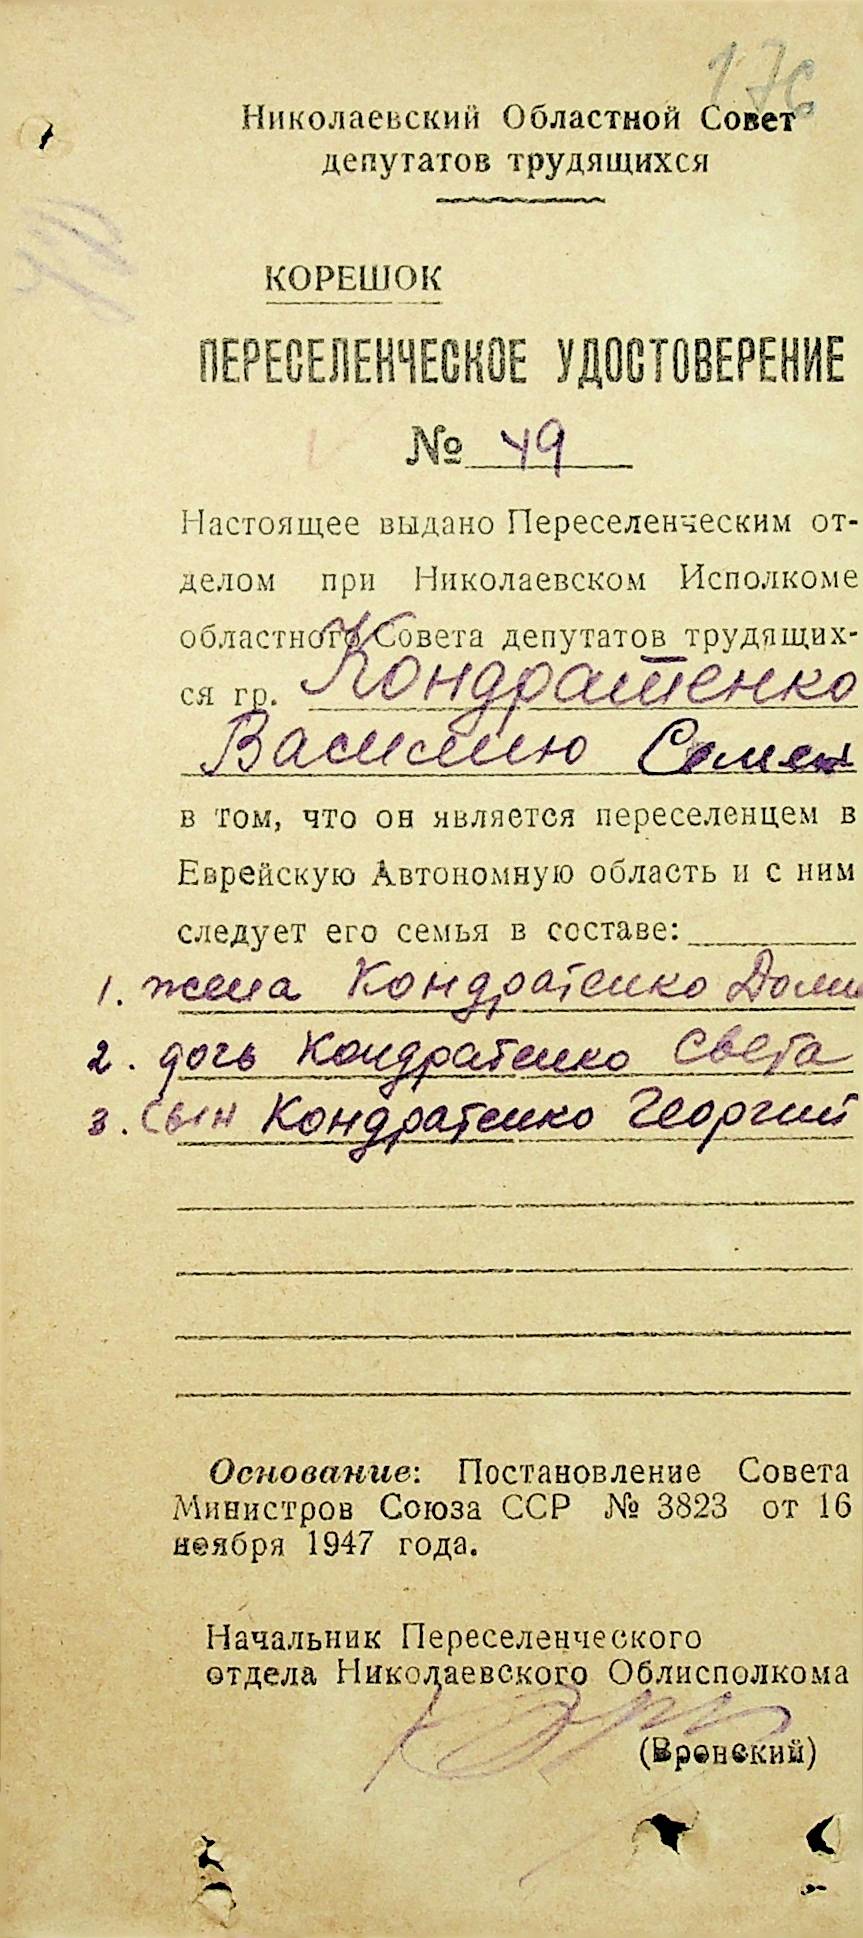 176
Николаевский Областной Совет
депутатов трудящихся
КОРЕШОК
ПЕРЕСЕЛЕНЧЕСКОЕ УДОСТОВЕРЕНИЕ
№ 49
Настоящее выдано Переселенческим от-
делом при Николаевском Исполкоме
областного Совета депутатов трудящих-
ся гр. Кондратенко
Василию Семен
в том, что он является переселенцем в
Еврейскую Автономную область и с ним
следует его семья в составе:
1. жена Кондратенко
2. дочь Кондратенко Света
3. сын Кондратенко Георгий
Основание: Постановление Совета
Министров Союза ССР № 3823 от 16
ноября 1947 года.
Начальник Переселенческого
отдела Николаевского Облисполкома
(Вронский)